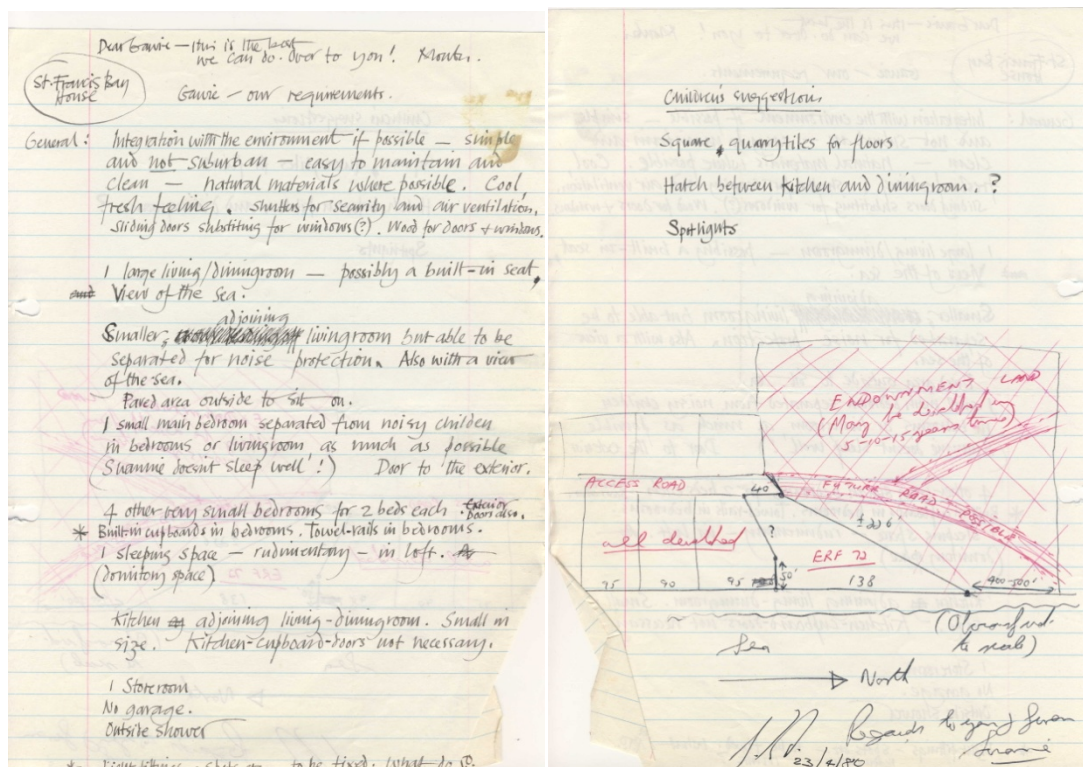 Dear Gawie — this is the best
we can do. Over to you!
St. Francis Bay
House
Gawie — our requirements.
General: Integration with the environment if possible — simple
and not suburban — easy to maintain and
clean — natural materials where possible. Cool,
fresh feeling. Shutters for security and air ventilation.
Sliding doors substituting for windows (?). Wood for doors + windows.
1 large living/diningroom — possibly a built-in seat,
View of the sea.
adjoining
Smaller, livingroom but able to be
separated for noise protection. Also with a view
of the sea.
Paved area outside to sit on.
1 small main bedroom separated from noisy children
in bedrooms or livingroom as much as possible
(Swannie doesnt sleep well!) Door to the exterior.
4 other very small bedrooms for 2 beds each. Exterior
door also.
* Built-in cupboards in bedrooms. Towel-rails in bedrooms.
1 sleeping space — rudimentary — in loft.
(dormitory space)
Kitchen adjoining living-diningroom. Small in
size. Kitchen-cupboard-doors not necessary.
1 Storeroom
No garage.
Outside shower
to be fixed. What do
Children's suggestions
Square, quarry tiles for floors
Hatch between kitchen and diningroom. ?
Spotlights
ENDOWNMENT LAND
(May be developed in
5-10-15 years time)
ACCESS ROAD
40
FUTURE ROAD POSSIBLE
±226
all developed
?
ERF 72
50'
95 90 95 138 400-500'
Sea
(Obviously not
to scale)
North
Regards to you &
23/4/80